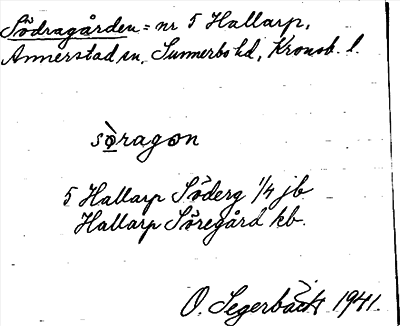 Södragården = nr 5 Hallarp,
Annerstad sn, Sunnerbo hd, Kronob. l.
sò̱ragọn
5 Hallarp Söderg 1/4 jb
Hallarp Söregård kb.
O. Segerbäck 1941.